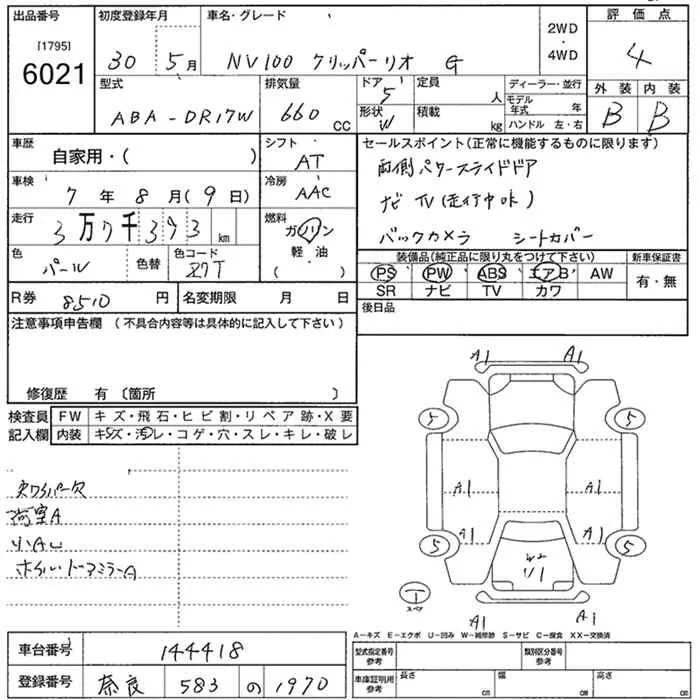 出品番号 初度登録年月 車名・グレード 評価点
[1795]
6021
30 5月 NV100 クリッパーリオ G
2WD
・
4WD
4
型式 排気量 ドア 定員 ディーラー・並行 外装 内装
ABA-DR17W 660 CC
5 人
モデル年式 年
形状 積載
W kg
ハンドル 左・右
B B
車歴 自家用・( )
シフト
AT
セールスポイント(正常に機能するものに限ります)
両側パワースライドドア
ナビ TV(走行中OK)
バックカメラ シートカバー
車検 7年8月(9日)
冷房
AAC
走行 3万7千393km
燃料
ガソリン
軽・油
( )
色 パール 色替 色コード
装備品(純正品に限り丸をつけて下さい) 新車保証書
PS PW ABS エアB AW
SR ナビ TV カワ
有・無
R券 8510円 名変期限 月 日
後日品
注意事項申告欄(不具合内容等は具体的に記入して下さい)
修復歴 有(箇所 )
検査員記入欄
FW キズ・飛石・ヒビ割・リペア跡・X要
内装 キズ・汚レ・コゲ・穴・スレ・キレ・破レ
荷室A
小AU
ホイル・ドアミラーA
A1 A1
5 5
A1 A1
A1 A1
5 5
W2
U1
スペア
A1 A1
A−キズ E−エクボ U−凹み W−補修跡 S−サビ C−腐食 XX−交換済
車台番号 144418
登録番号 奈良 583 の 1970
型式指定番号
参考
類別区分番号
参考
車庫証明用
参考
長さ cm 幅 cm 高さ cm